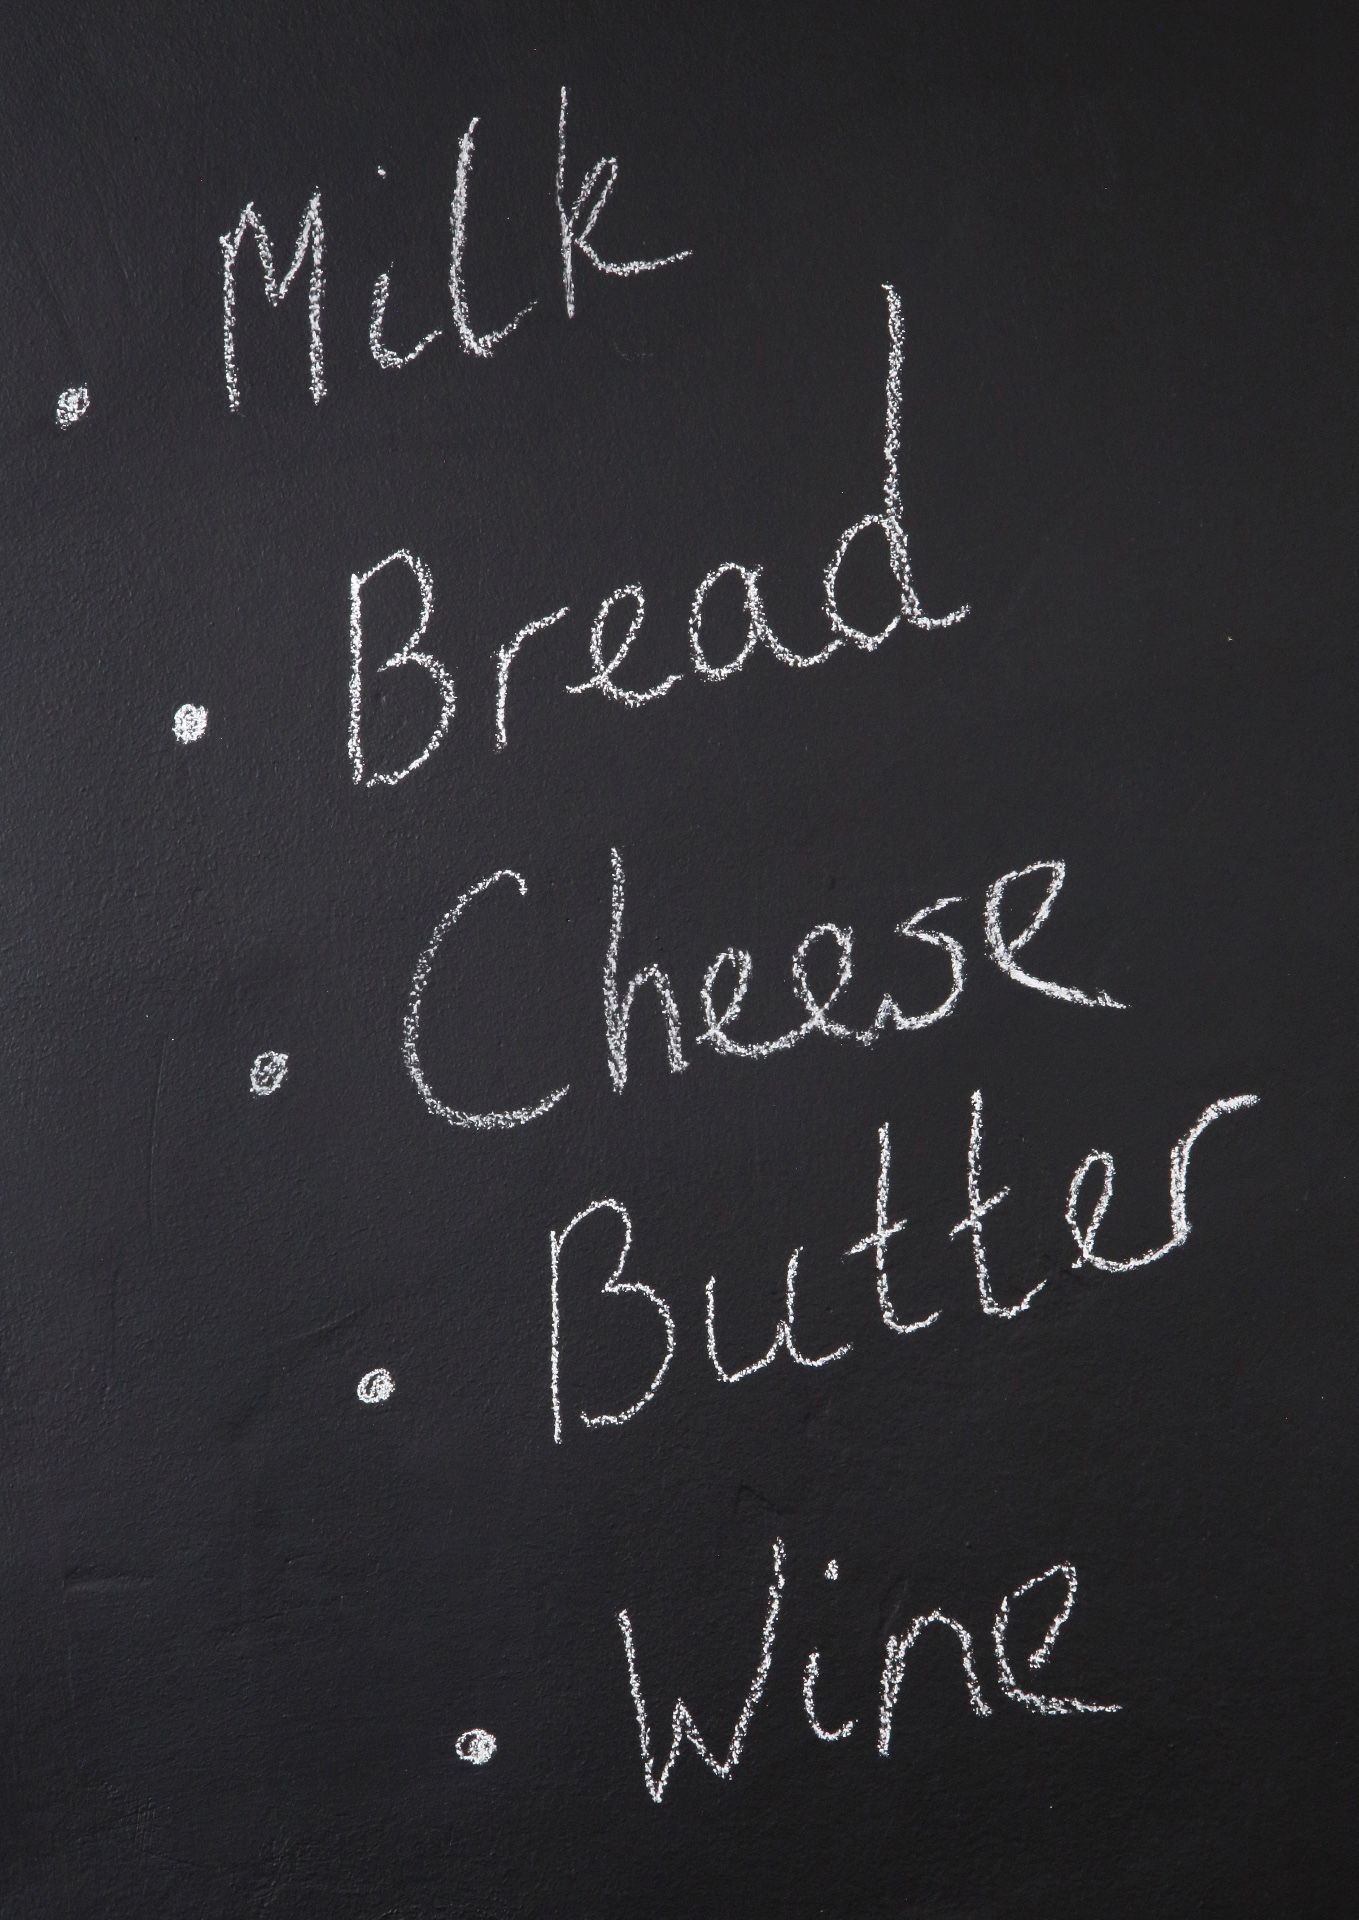 • Milk
• Bread
• Cheese
• Butter
• Wine